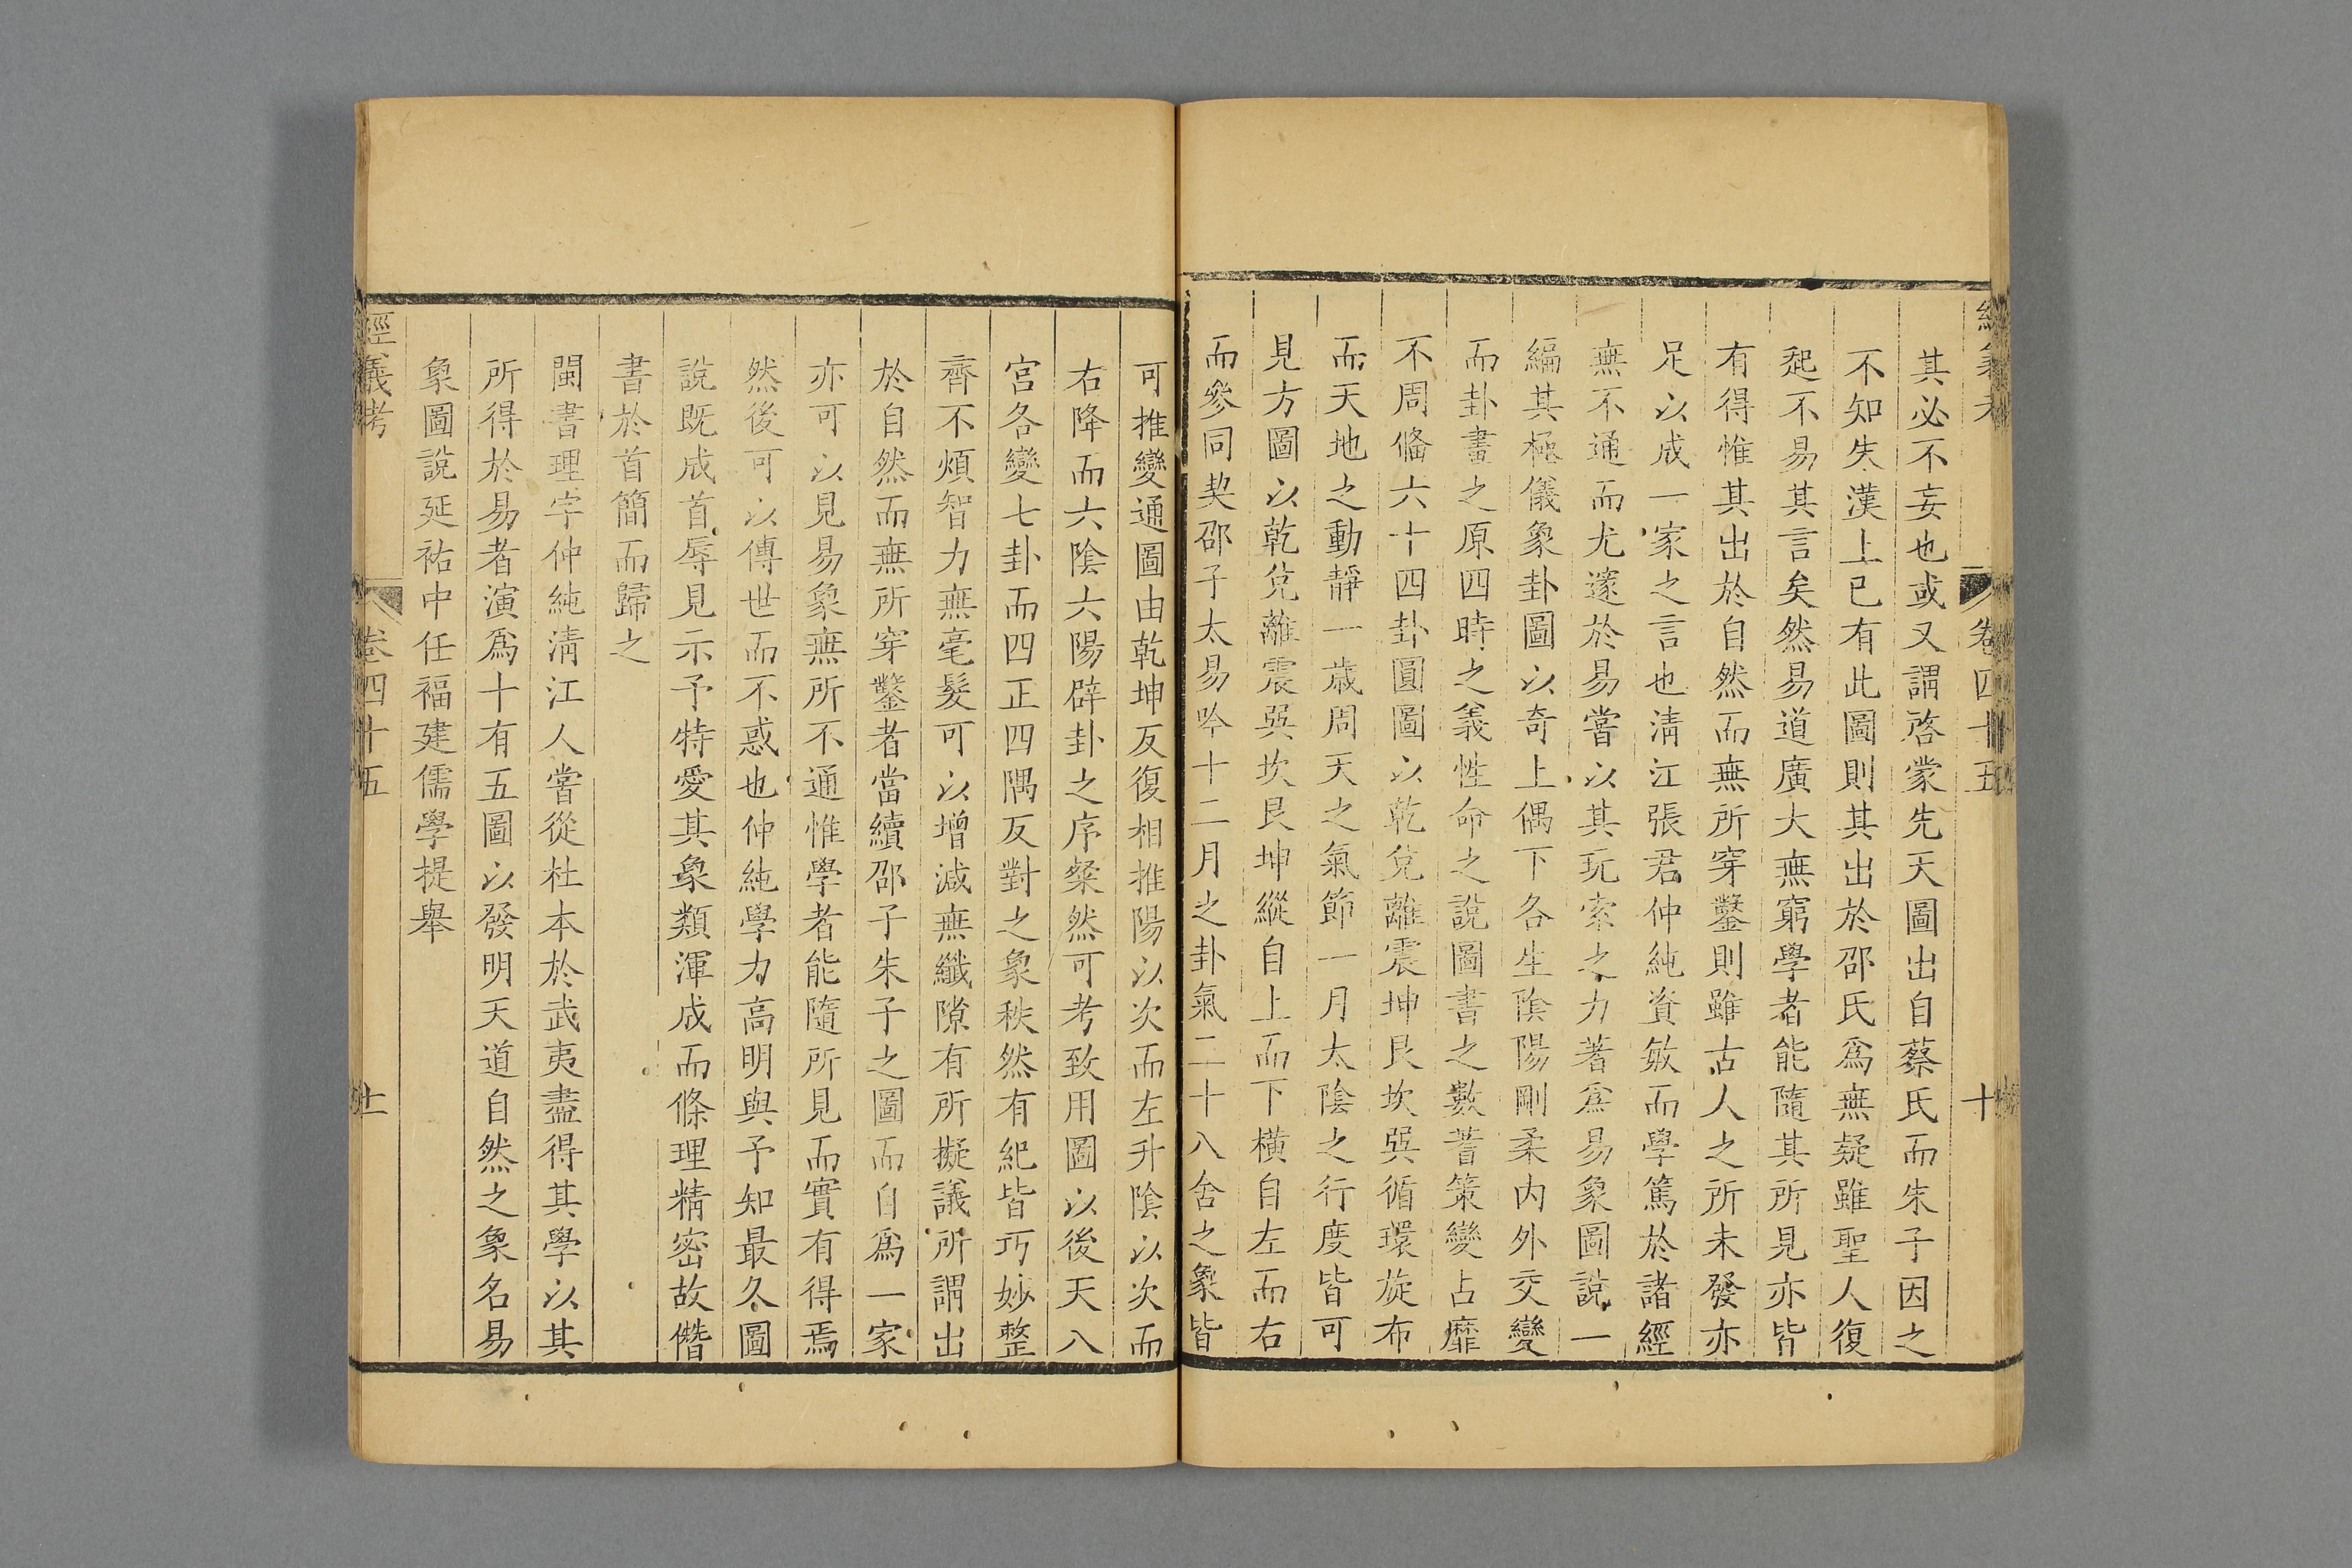 經義考 卷四十五 十
其必不妄也或又謂啓蒙先天圖出自蔡氏而朱子因之
不知朱漢上已有此圖則其出於邵氏爲無疑雖聖人復
起不易其言矣然易道廣大無窮學者能隨其所見亦皆
有得惟其出於自然而無所穿鑿則雖古人之所未發亦
足以成一家之言也淸江張君仲純資敏而學篤於諸經
無不通而尤邃於易嘗以其玩索之力著爲易象圖說一
編其極儀象卦圖以奇上偶下各生陰陽剛柔内外交變
而卦畫之原四時之義性命之說圖書之數蓍策變占靡
不周備六十四卦圓圖以乾兌離震坤艮坎巽循環旋布
而天地之動靜一歲周天之氣節一月太陰之行度皆可
見方圖以乾兌離震巽坎艮坤縱自上而下橫自左而右
而參同契邵子太易吟十二月之卦氣二十八舍之象皆
可推變通圖由乾坤反復相推陽以次而左升陰以次而
右降而六陰六陽辟卦之序粲然可考致用圖以後天八
宮各變七卦而四正四隅反對之象秩然有紀皆巧妙整
齊不煩智力無毫髮可以增減無纖隙有所擬議所謂出
於自然而無所穿鑿者當續邵子朱子之圖而自爲一家
亦可以見易象無所不通惟學者能隨所見而實有得焉
然後可以傳世而不惑也仲純學力高明與予知最久圖
說旣成首辱見示予特愛其象類渾成而條理精密故僭
書於首簡而歸之
閩書理字仲純淸江人嘗從杜本於武夷盡得其學以其
所得於易者演爲十有五圖以發明天道自然之象名易
象圖說延祐中任福建儒學提舉
經義考 卷四十五 十一